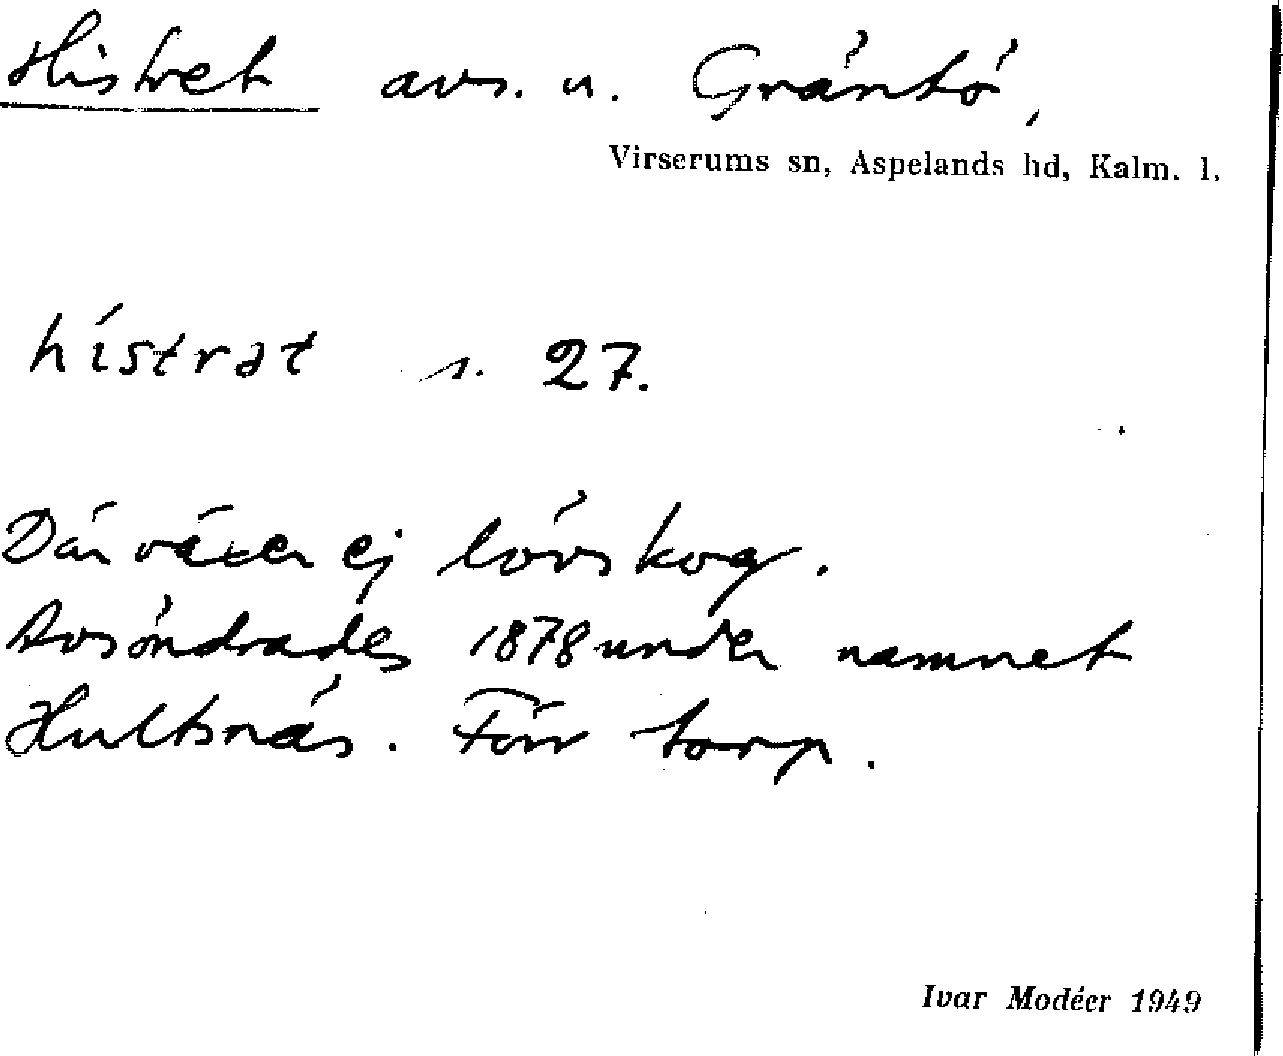 Histret avs. u. Gräntö,
Virserums sn, Aspelands hd, Kalm. l.
hístrət s. 27.
Där växer ej lövskog.
Avsöndrades 1878 under namnet
Hultsnäs. Förr torp.
Ivar Modéer 1949